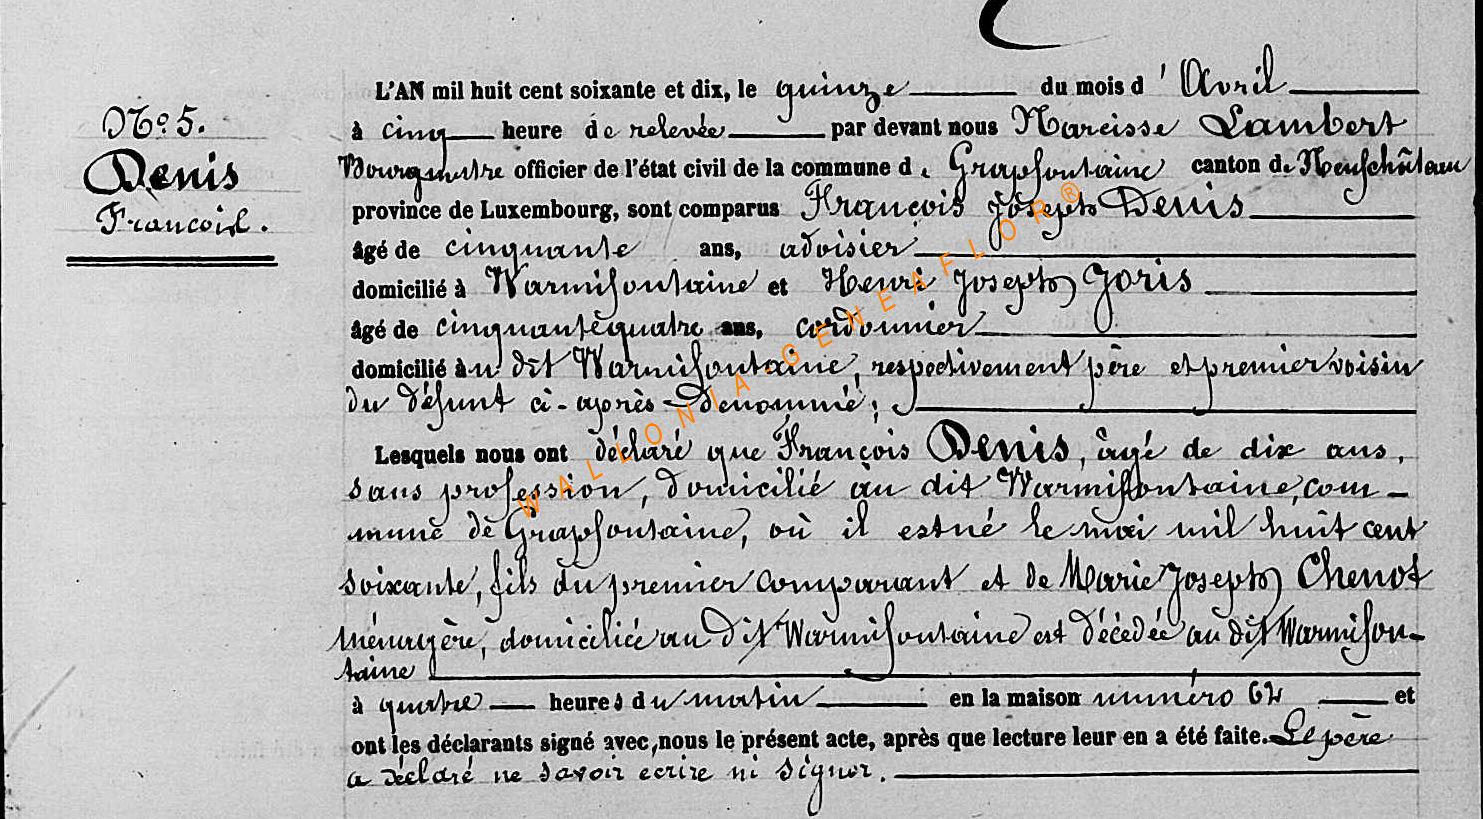 L'AN mil huit cent soixante et dix, le quinze du mois d'Avril
No 5.
à cinq heure de relevée par devant nous Narcisse Lambert
Denis
Bourgmestre officier de l'état civil de la commune de Grapfontaine canton de Neufchâteau
François.
province de Luxembourg, sont comparus François Joseph Denis
âgé de cinquante ans, adoisier
domicilié à Warmifontaine et Henri Joseph Joris
âgé de cinquante quatre ans, cordonnier
domicilié au dit Warmifontaine, respectivement père et premier voisin
du défunt ci-après dénommé;
Lesquels nous ont déclaré que François Denis, âgé de dix ans,
sans profession, domicilié au dit Warmifontaine, com-
mune de Grapfontaine, où il est né le mai mil huit cent
soixante, fils du premier comparant et de Marie Joseph Chenot
ménagère, domiciliée au dit Warmifontaine est décédée au dit Warmifon-
taine
à quatre heures du matin en la maison numéro 62 et
ont les déclarants signé avec nous le présent acte, après que lecture leur en a été faite. Le père
a déclaré ne savoir écrire ni signer.
WALLONIA-GENEAFLOR®